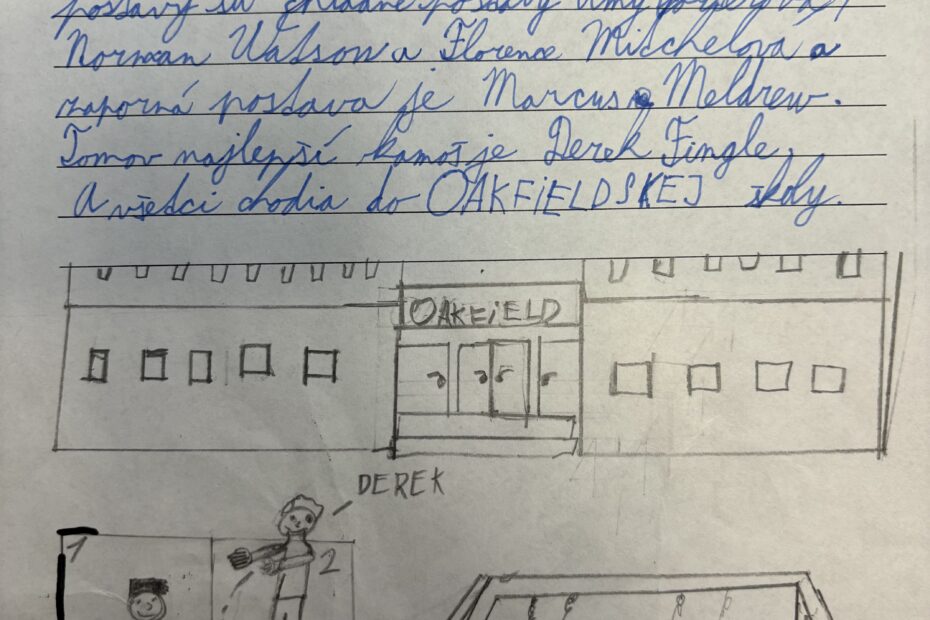 postavy sú
Norman Watson a Florence Mitchelová a
záporná postava je Marcus Meldrew.
Tomov najlepší kamoš je Derek Fingle,
A všetci chodia do OAKFiELDSKEJ školy.
OAKFiELD
DEREK
1
2